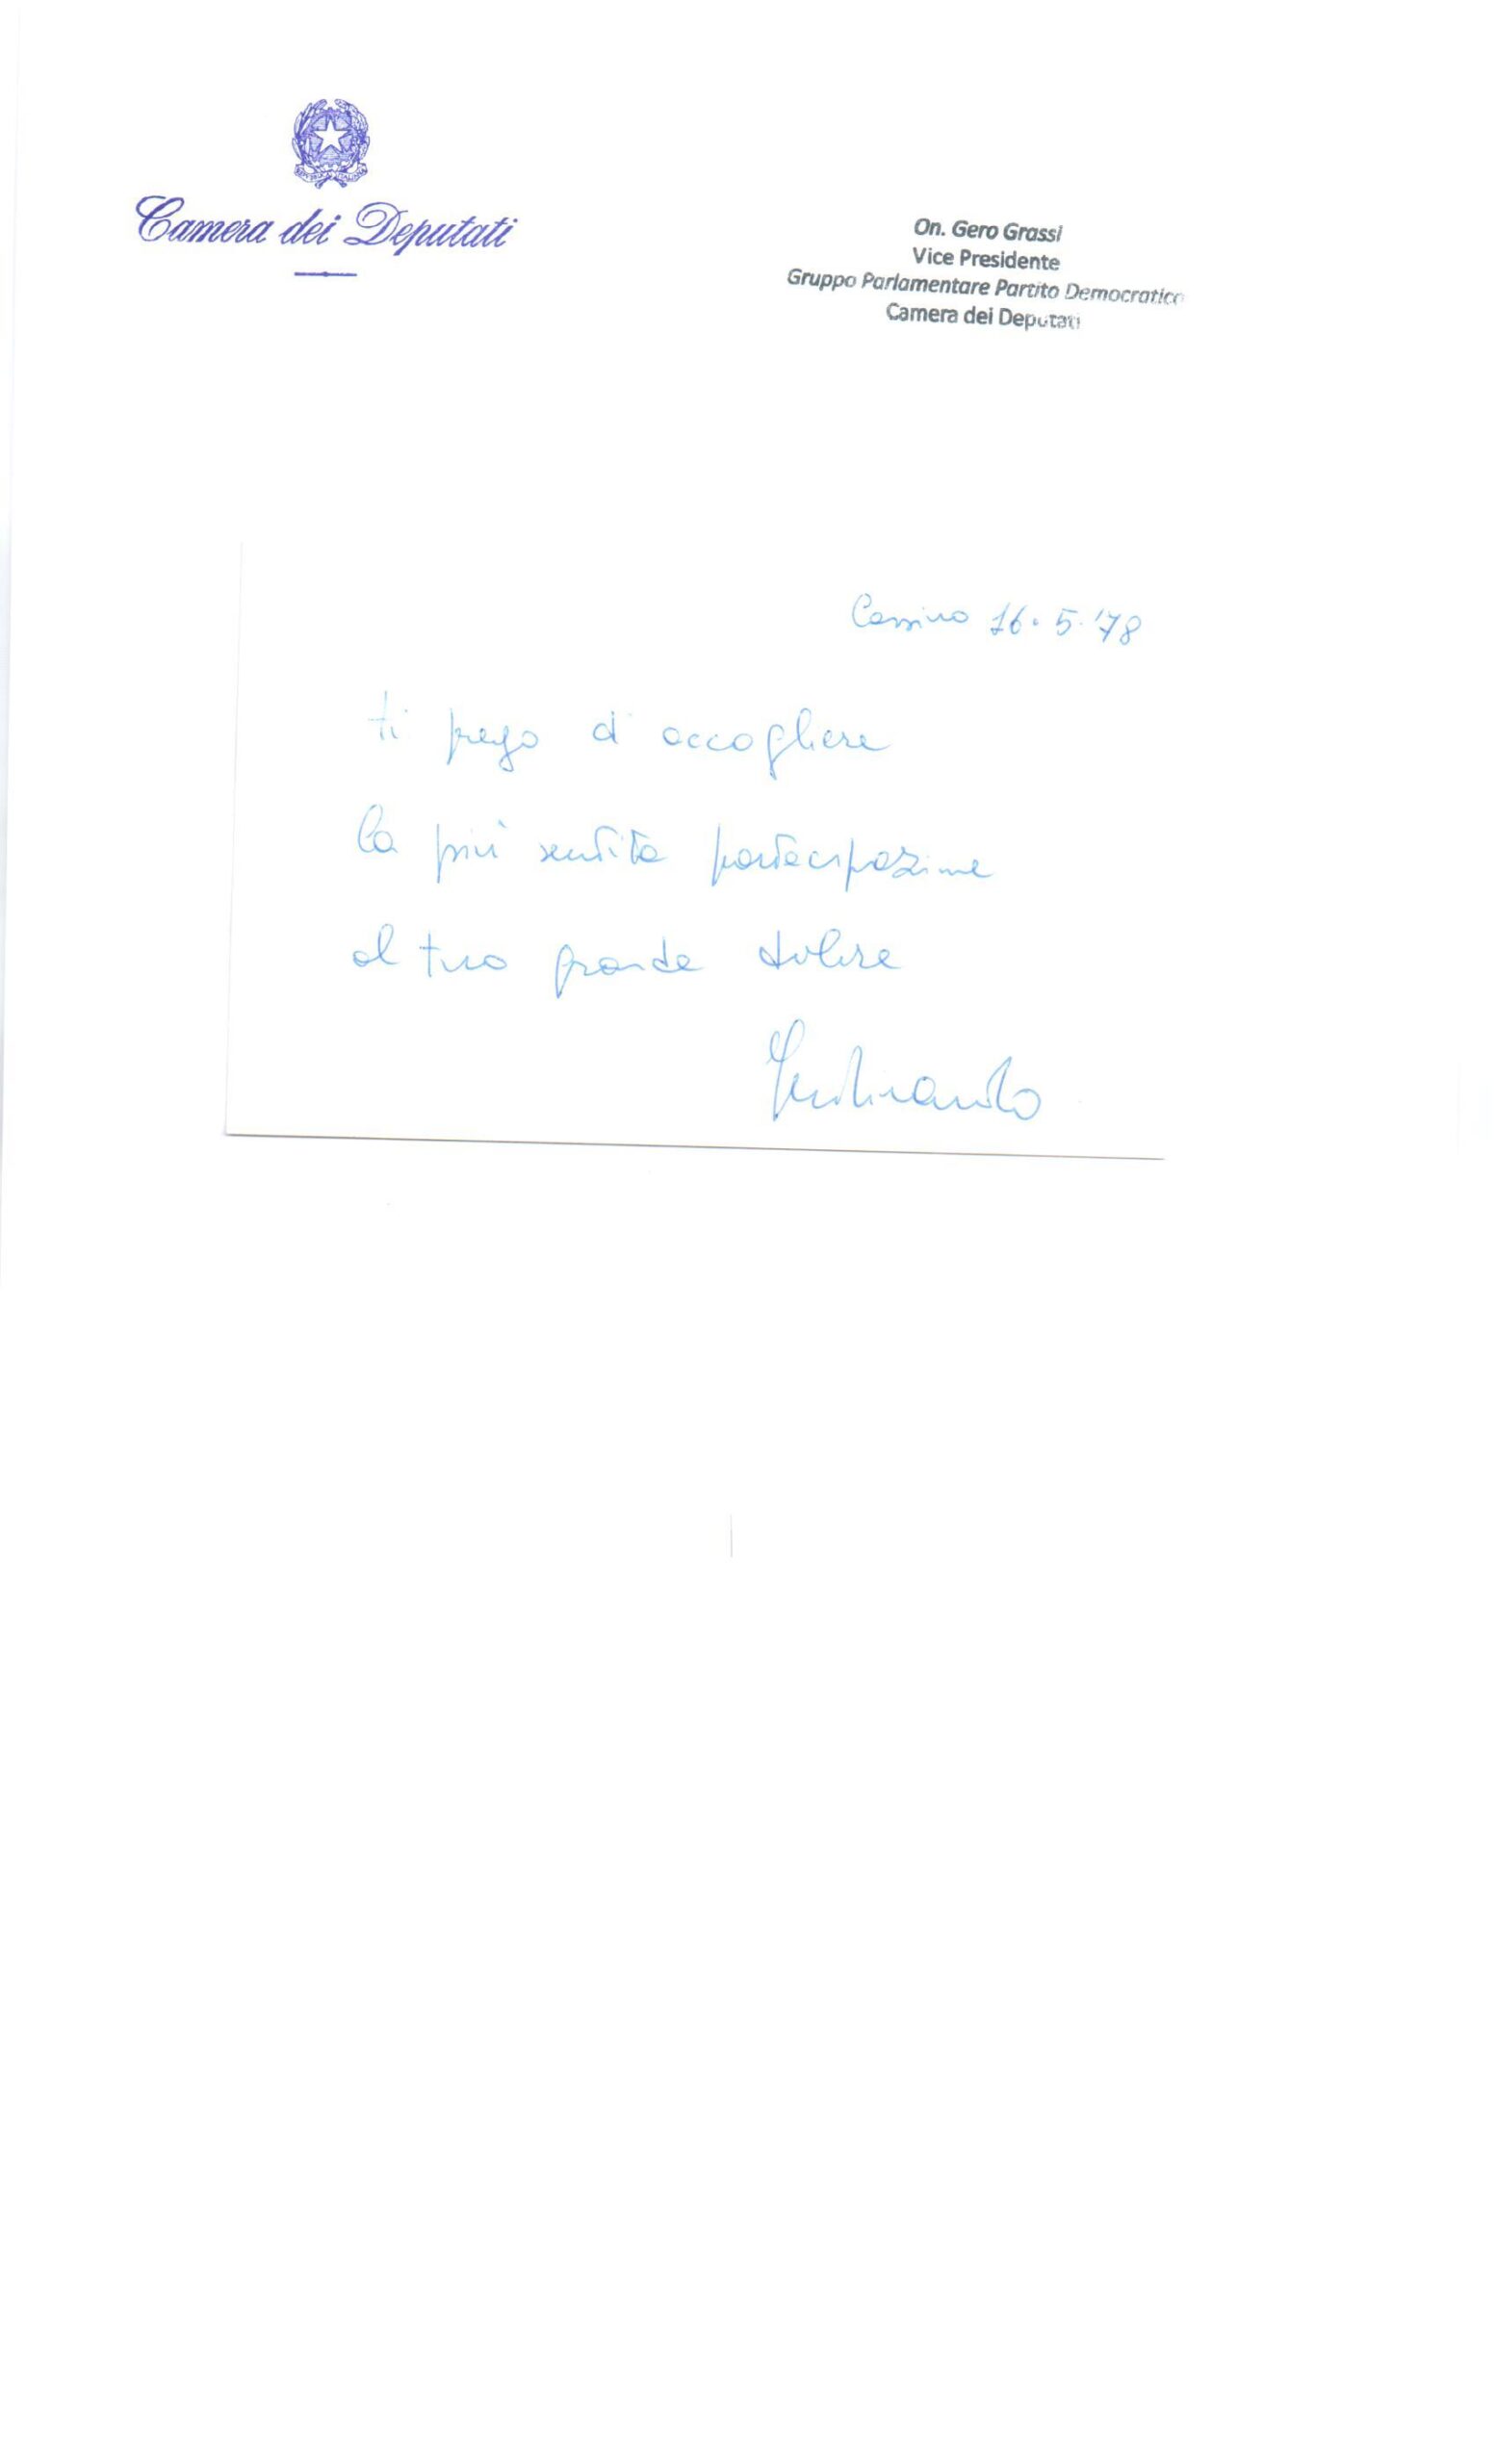 REPUBBLICA ITALIANA
Camera dei Deputati
On. Gero Grassi
Vice Presidente
Gruppo Parlamentare Partito Democratico
Camera dei Deputati
Cassino 16.5.'78
ti prego d'accogliere
la più sentita partecipazione
al tuo grande dolore
Ferdinando